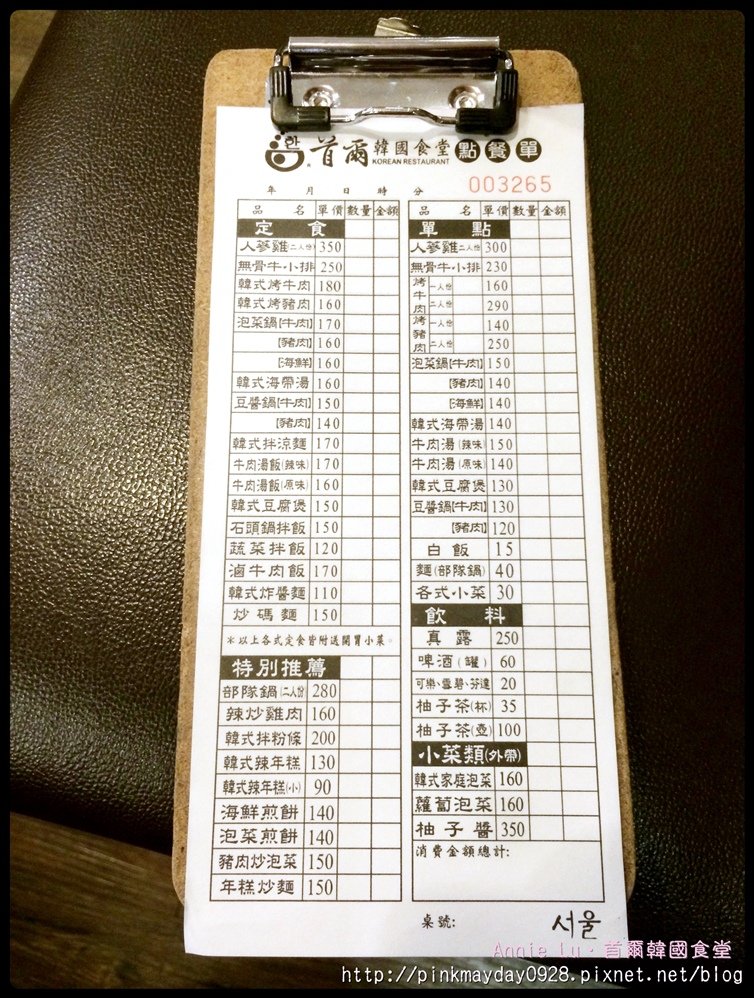 한 首爾 韓國食堂 點餐單
KOREAN RESTAURANT
003265
年 月 日 時 分
品 名 單價 數量 金額
定 食
人蔘雞(二人份) 350
無骨牛小排 250
韓式烤牛肉 180
韓式烤豬肉 160
泡菜鍋[牛肉] 170
[豬肉] 160
[海鮮] 160
韓式海帶湯 160
豆醬鍋[牛肉] 150
[豬肉] 140
韓式拌涼麵 170
牛肉湯飯(辣味) 170
牛肉湯飯(原味) 160
韓式豆腐煲 150
石頭鍋拌飯 150
蔬菜拌飯 120
滷牛肉飯 170
韓式炸醬麵 110
炒碼麵 150
*以上各式定食皆附送開胃小菜。
特別推薦
部隊鍋(二人份) 280
辣炒雞肉 160
韓式拌粉條 200
韓式辣年糕 130
韓式辣年糕(小) 90
海鮮煎餅 140
泡菜煎餅 140
豬肉炒泡菜 150
年糕炒麵 150
品 名 單價 數量 金額
單 點
人蔘雞(二人份) 300
無骨牛小排 230
烤牛肉 一人份 160
二人份 290
烤豬肉 一人份 140
二人份 250
泡菜鍋[牛肉] 150
[豬肉] 140
[海鮮] 140
韓式海帶湯 140
牛肉湯(辣味) 150
牛肉湯(原味) 140
韓式豆腐煲 130
豆醬鍋[牛肉] 130
[豬肉] 120
白飯 15
麵(部隊鍋) 40
各式小菜 30
飲 料
真露 250
啤酒(罐) 60
可樂、雪碧、芬達 20
柚子茶(杯) 35
柚子茶(壺) 100
小菜類(外帶)
韓式家庭泡菜 160
蘿蔔泡菜 160
柚子醬 350
消費金額總計:
桌號:
서울
Annie Lu · 首爾韓國食堂
http://pinkmayday0928.pixnet.net/blog